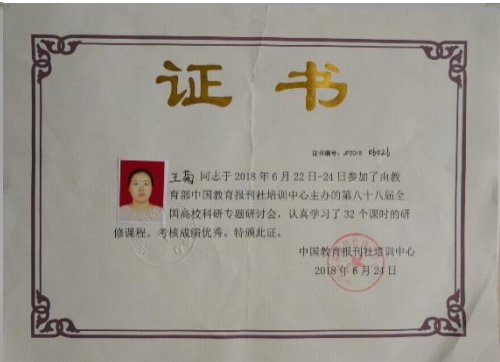 证书
证书编号：JP2018 06026
王菊 同志于2018年6月22日-24日参加了由教
育部中国教育报刊社培训中心主办的第八十八届全
国高校科研专题研讨会，认真学习了32个课时的研
修课程。考核成绩优秀。特颁此证。
中国教育报刊社培训中心
2018年6月24日